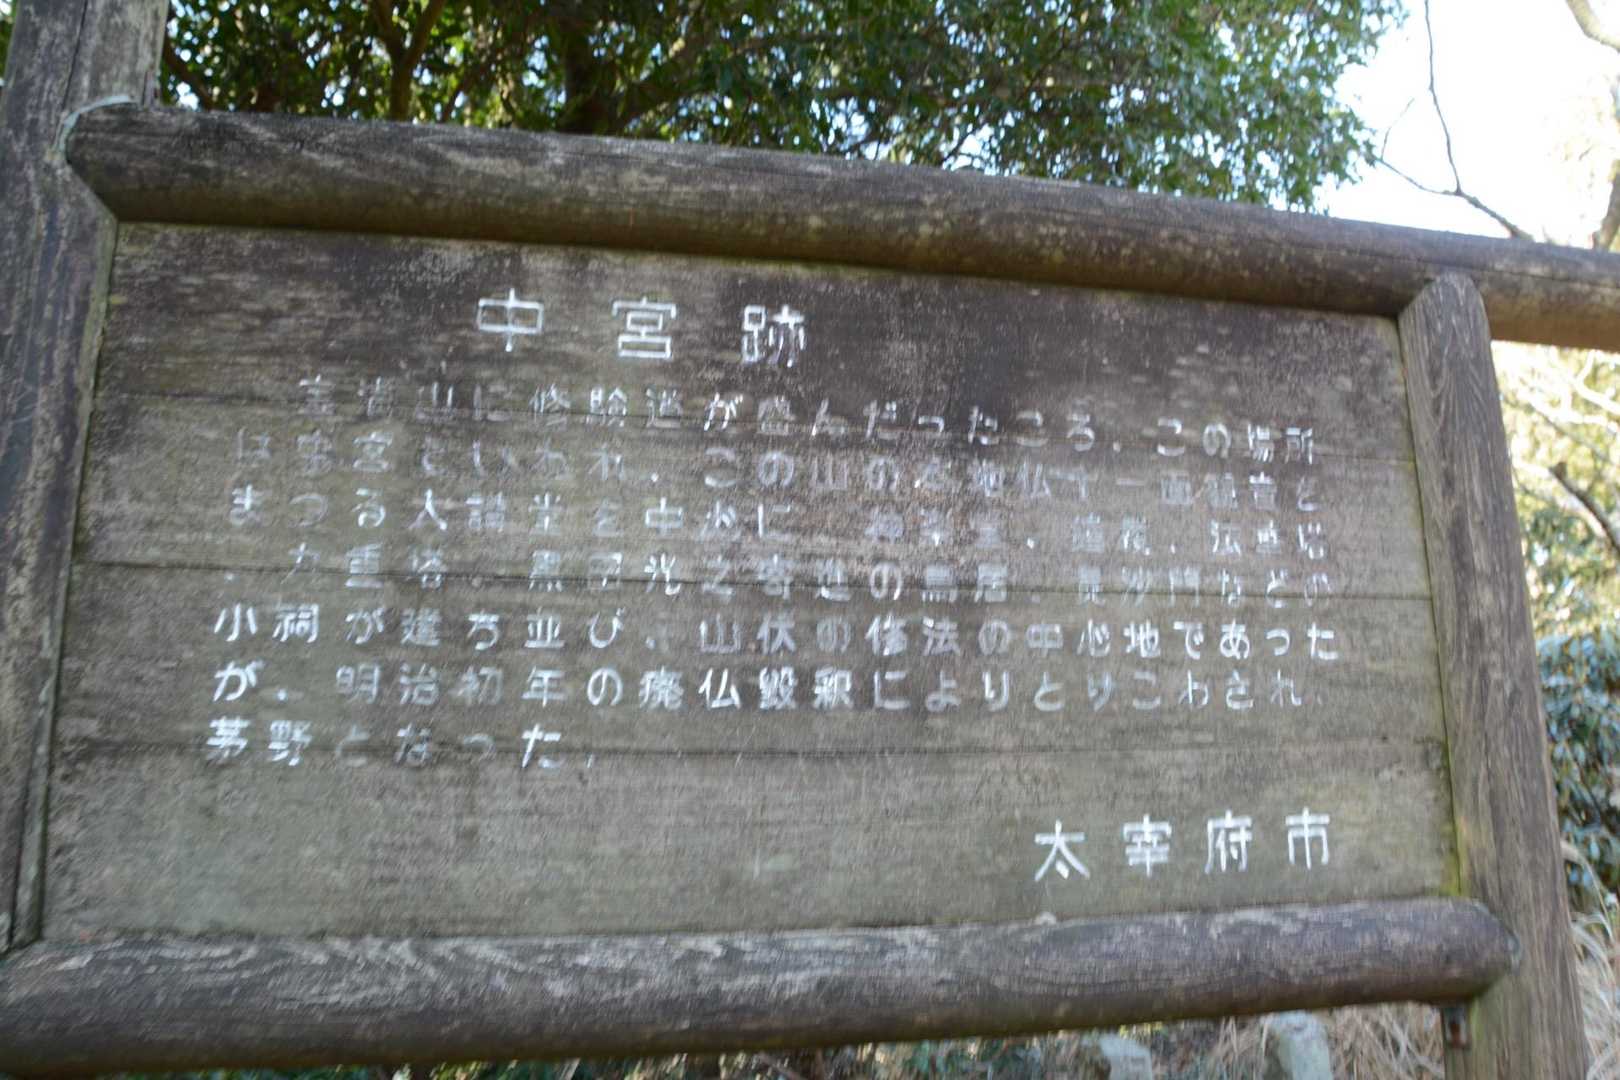 中宮跡
宝満山に修験道が盛んだったころ、この場所
は中宮といわれ、この山の本地仏十一面観音を
まつる大講堂を中心に、神楽堂、鐘楼、法華塔
、九重塔、黒田光之寄進の鳥居、毘沙門などの
小祠が建ち並び、山伏の修法の中心地であった
が、明治初年の廃仏毀釈によりとりこわされ、
茅野となった。
太宰府市